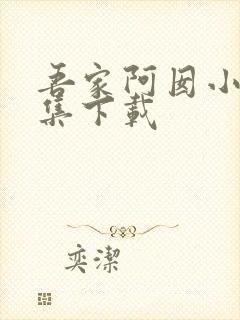 吾家阿囡小
集下载
奕潔